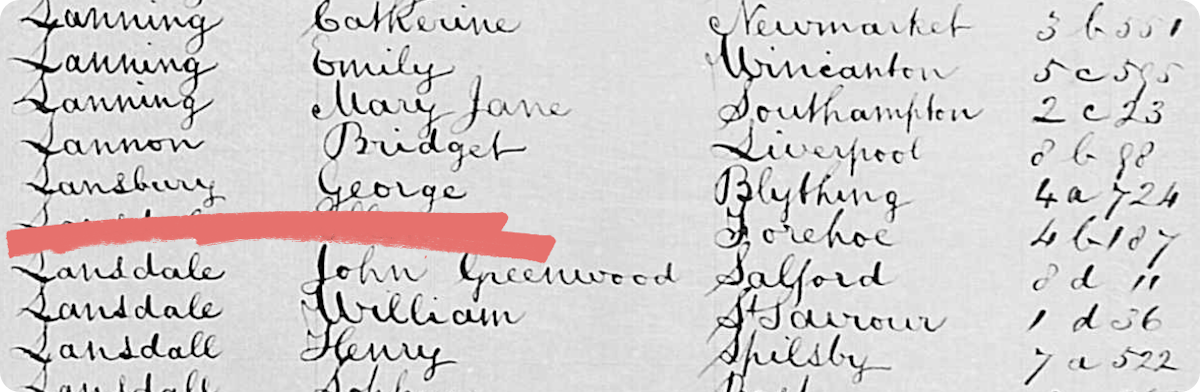 Lanning Catherine Newmarket 3 b 551
Lanning Emily Wincanton 5 c 595
Lanning Mary Jane Southampton 2 c 23
Lannon Bridget Liverpool 8 b 98
Lansbury George Blything 4 a 724
Forehoe 4 b 187
Lansdale John Greenwood Salford 8 d 11
Lansdale William St Saviour 1 d 36
Lansdall Henry Spilsby 7 a 522
Lansdall John